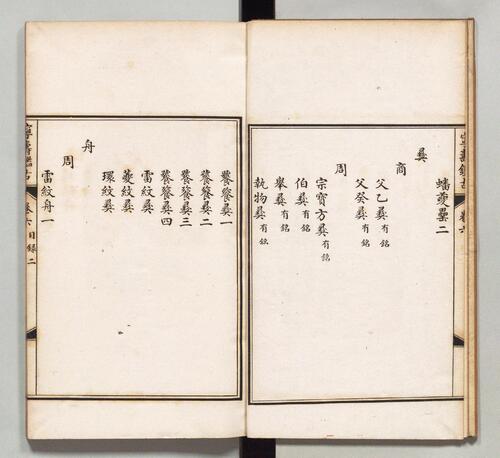 寧壽鑑古
卷六
蟠夔罍二
彝
商
父乙彝有銘
父癸彝有銘
周
宗寶方彝有銘
伯彝有銘
舉彝有銘
執物彝有銘
饕餮彝一
饕餮彝二
饕餮彝三
饕餮彝四
雷紋彝
夔紋彝
環紋彝
舟
周
雷紋舟一
寧壽鑑古
卷六目錄
二